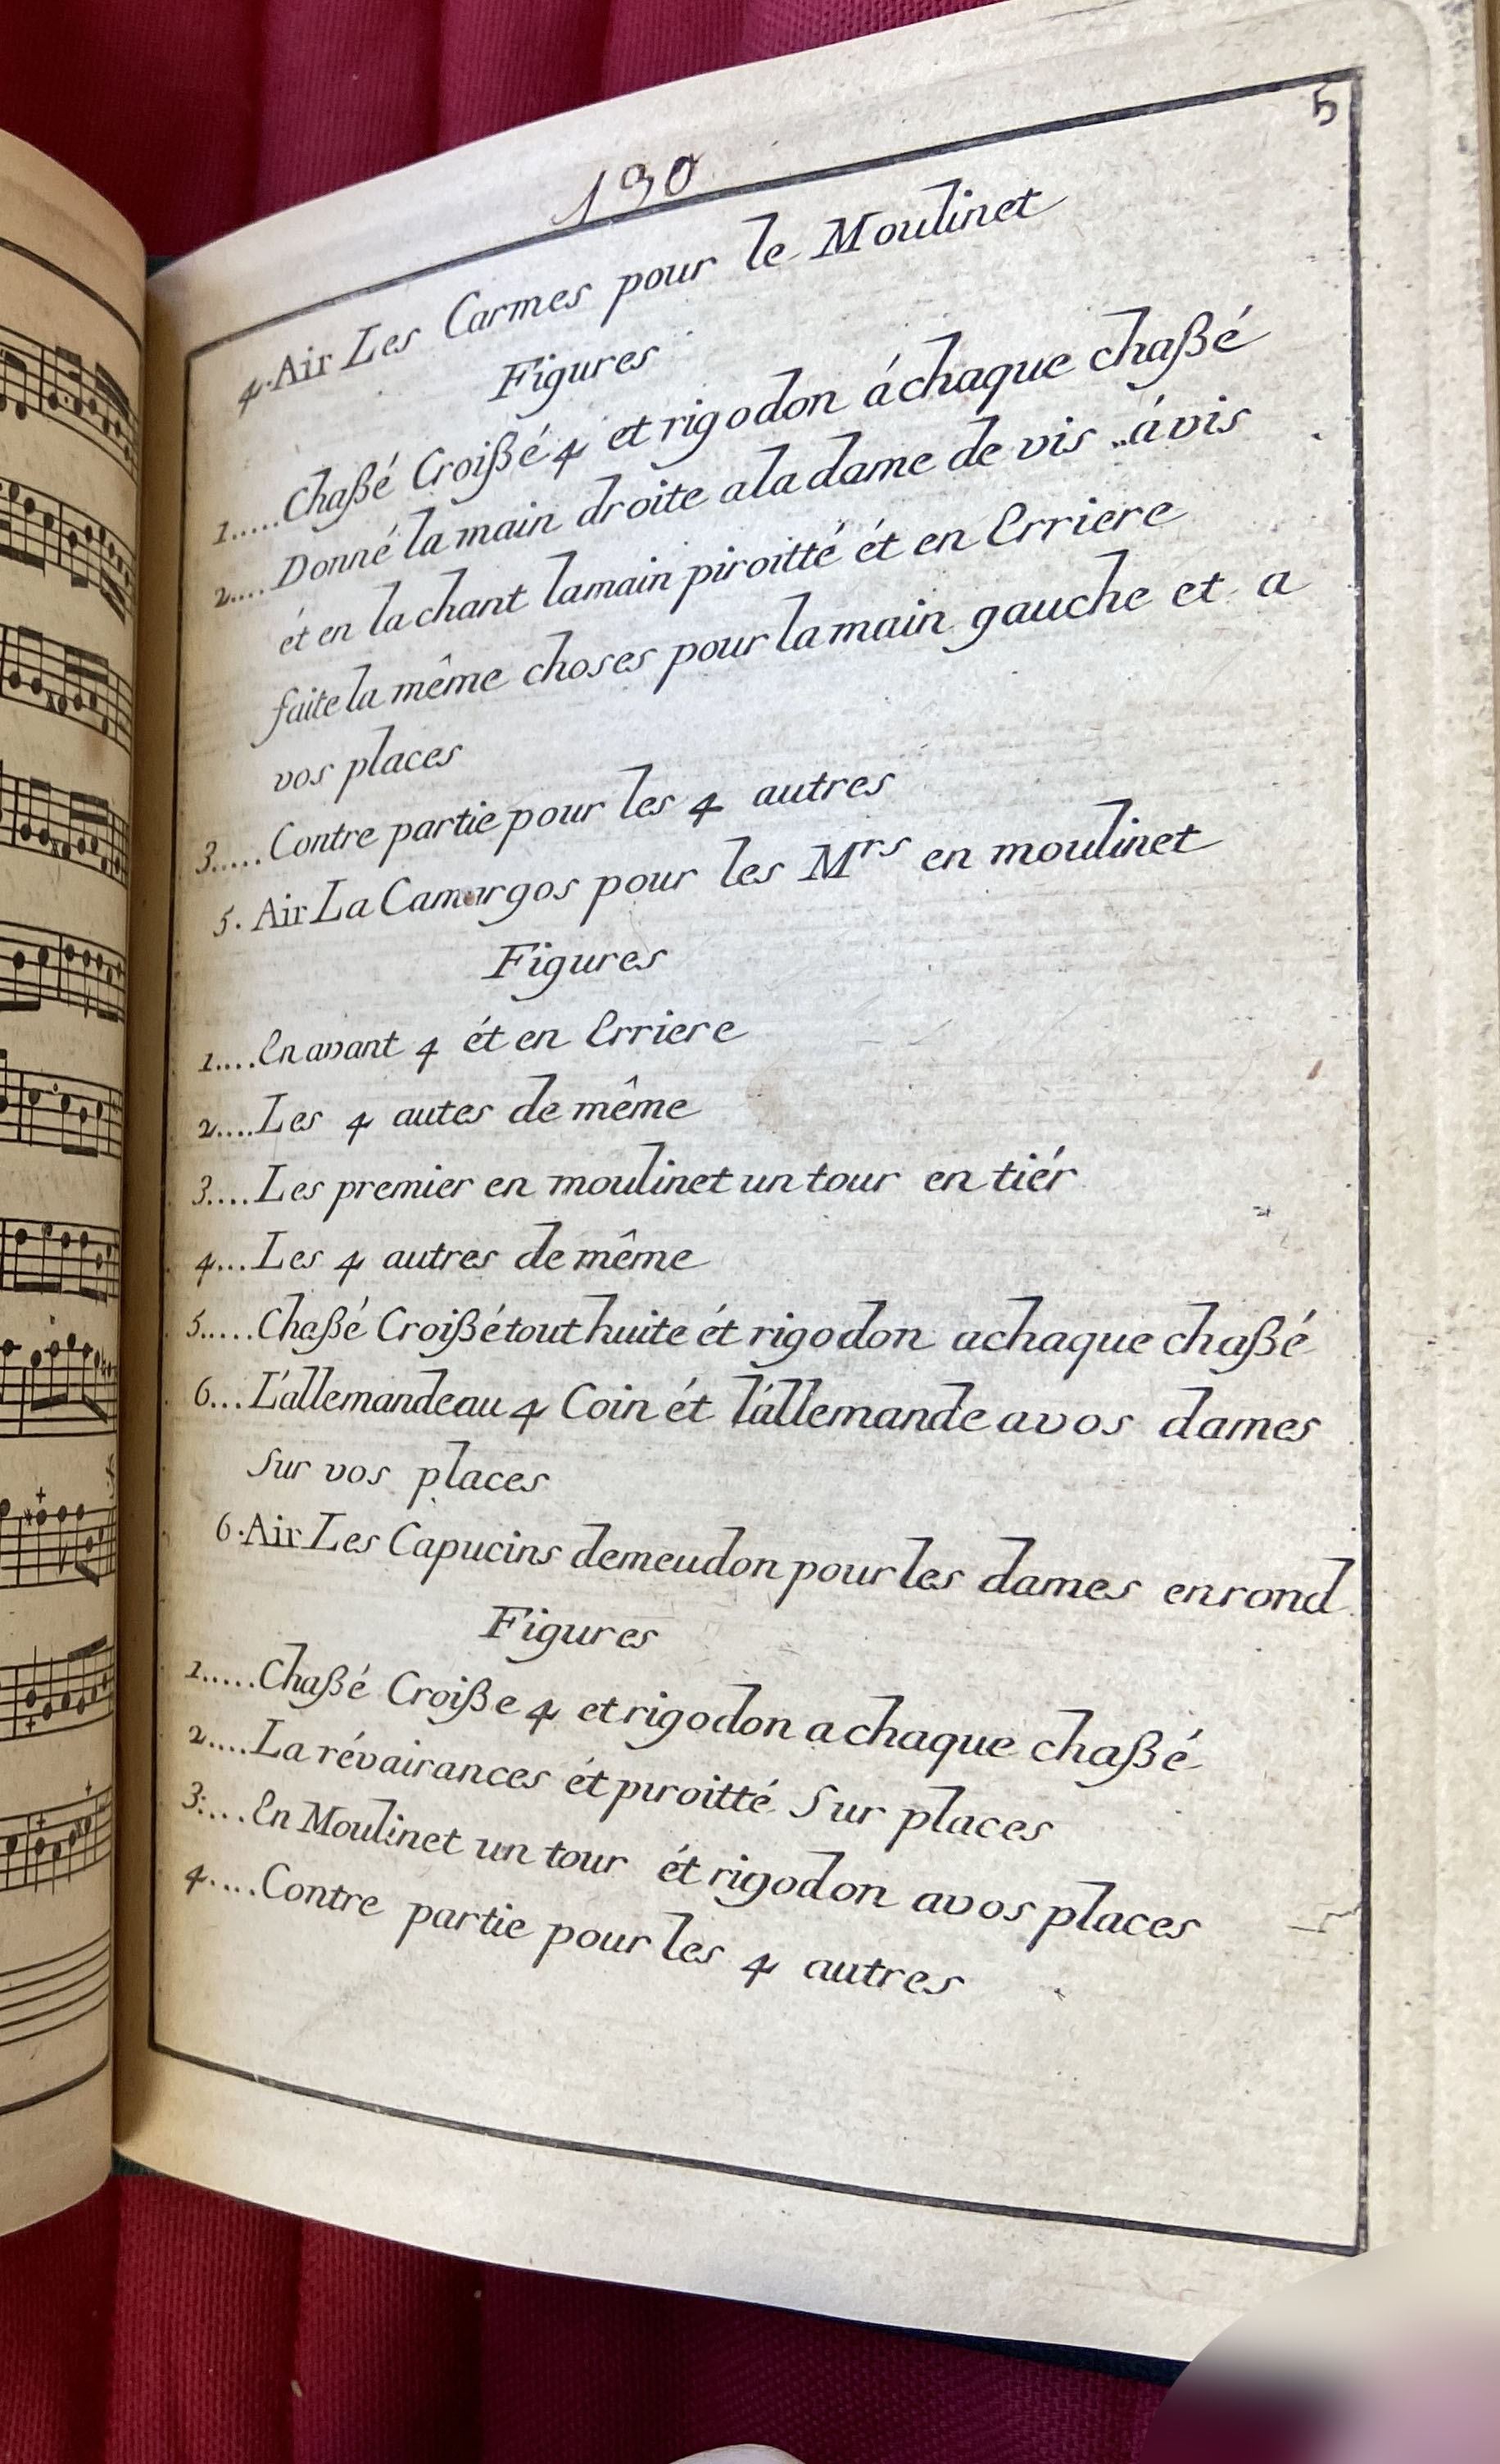 5
190
4. Air Les Carmes pour le Moulinet
Figures
1..... Chaßé Croißé 4 et rigodon áchaque chaßé
2.... Donné la main droite a la dame de vis ..ávis
ét en la chant lamain piroitté ét en Erriere
faite la même choses pour la main gauche et a
vos places
3..... Contre partie pour les 4 autres
5. Air La Camargos pour les Mrs en moulinet
Figures
1.... En avant 4 ét en Erriere
2.... Les 4 autes de même
3.... Les premier en moulinet un tour en tiér
4... Les 4 autres de même
5..... Chaßé Croißé tout huite ét rigodon achaque chaßé
6... L'allemande au 4 Coin ét l'állemande avos dames
Sur vos places
6. Air Les Capucins demeudon pour les dames enrond
Figures
1..... Chaßé Croiße 4 et rigodon a chaque chaßé
2.... La révairances ét piroitté Sur places
3.... En Moulinet un tour ét rigodon avos places
4.... Contre partie pour les 4 autres